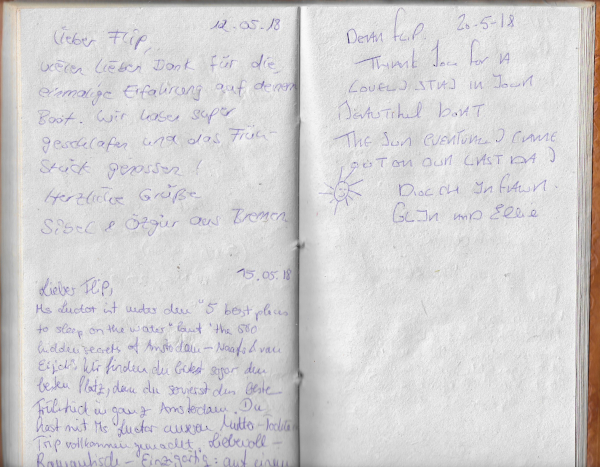 12.05.18
Lieber Flip,
vielen lieben Dank für die
einmalige Erfahrung auf deinem
Boot. Wir haben super
geschlafen und das Früh-
stück genossen!
Herzliche Grüße
Sibel & Özgür aus Bremen
15.05.18
Lieber Flip,
Ms Luctor ist unter den "5 best places
to sleep on the water" laut "the 500
hidden secrets of Amsterdam –
Wir finden du bist sogar der
beste Platz, denn du servierst das beste
Frühstück in ganz Amsterdam. Du
hast mit Ms Luctor unseren Mutter-Tochter-
Trip vollkommen gemacht. Liebevoll –
Romantisch – Einzigartig: auf einem
20-5-18
DEAR FLIP.
THANK YOU FOR A
LOVELY STAY IN YOUR
BEAUTIFUL BOAT
THE SUN EVENTUALLY CAME
OUT ON OUR LAST DAY
GLYN AND Ellie